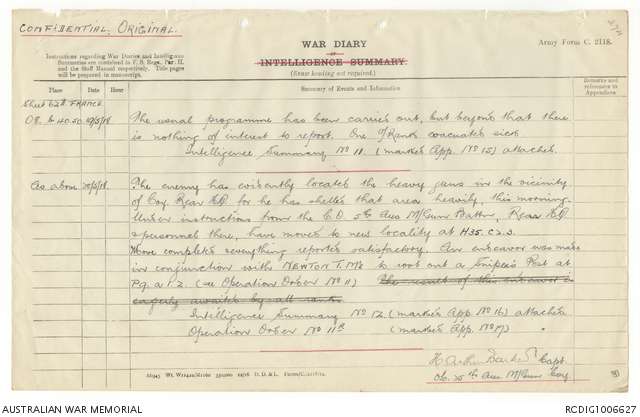 CONFIDENTIAL. ORIGINAL.
WAR DIARY
or
INTELLIGENCE SUMMARY.
(Erase heading not required.)
Army Form C. 2118.
Instructions regarding War Diaries and Intelligence
Summaries are contained in F. S. Regs., Part II.
and the Staff Manual respectively. Title pages
will be prepared in manuscript.
Place Date Hour Summary of Events and Information Remarks and references to Appendices
Sheet 62D. FRANCE
19/5/18. The usual programme has been carried out, but beyond that there
is nothing of interest to report. One O/Rank evacuated sick
Intelligence Summary No 11. (marked App. No 15) attached.
As above 20/5/18. The enemy has evidently located the heavy guns in the vicinity
of Coy. Rear HQ for he has shelled that area heavily, this morning.
Under instructions from the C.O. 5th Aus M/Gun Battn, Rear HQ
& personnel there, have moved to new locality at H35.c.5.5.
Move completed & everything reported satisfactory. An endeavor was made
in conjunction with NEWTON T.Ms to root out a Snipers Post at
(see Operation Order No 11) The result of this endeavor is
eagerly awaited by all ranks.
Intelligence Summary No 12 (marked App No 16) attached
Operation Order No 11 (marked App No 17) "
Capt
OC. 15th Aus M/Gun Coy
D. D. & L.
AUSTRALIAN WAR MEMORIAL
RCDIG1006627